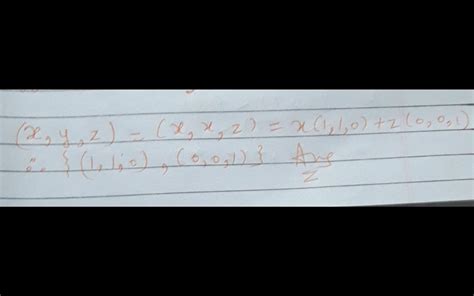 (x, y, z) = (x, x, z) = x(1,1,0) + z(0,0,1)
∴ {(1,1,0), (0,0,1)} Ans